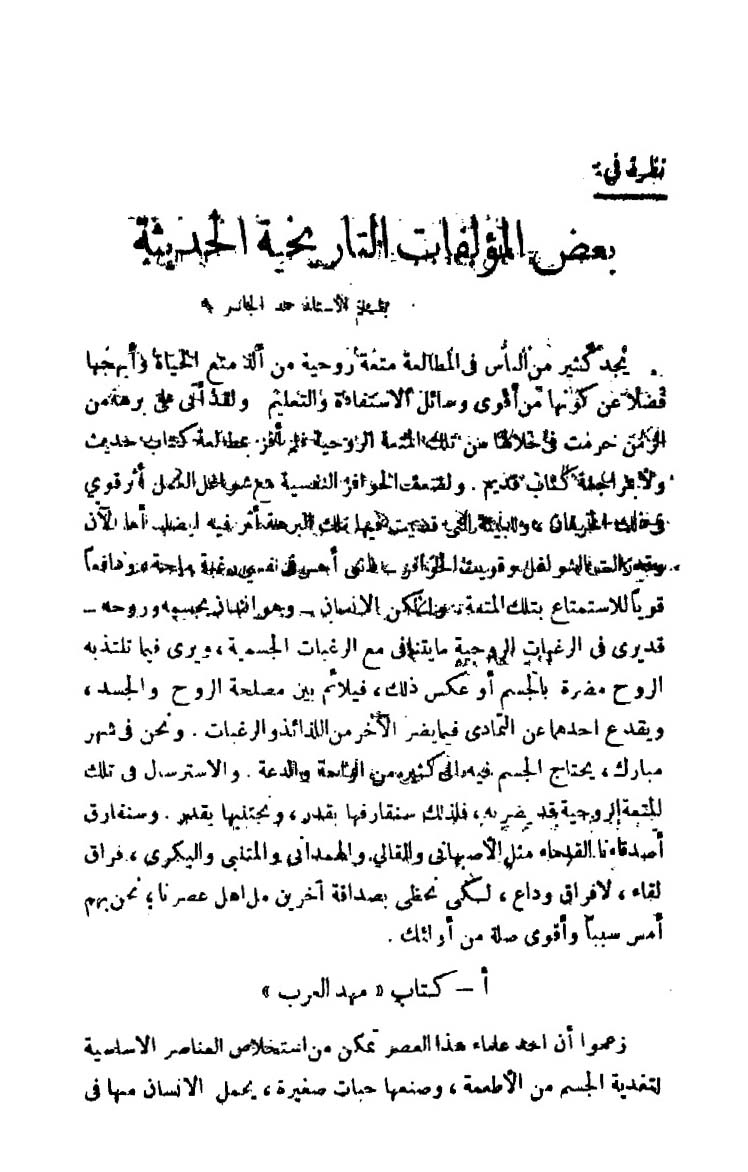 نظرة في :
بعض المؤلفات التاريخية الحديثة
بقلم الأستاذ حمد الجاسر
يجد كثير من الناس في المطالعة متعة روحية من ألذ متع الحياة وأبهجها
فضلا عن كونها من أقوى وسائل الاستفادة والتعليم ولقد أتى علي برهة من
الزمن حرمت في خلالها من تلك المتعة الروحية فلم أفز بمطالعة كتاب حديث
ولا مراجعة كتاب قديم . ولضعف الحوافز النفسية مع شواغل العمل أثر قوي
في ذلك الحرمان ، وللبيئة التي قضيت فيها تلك البرهة أثر فيه ايضا . أما الآن
وقد زالت الشواغل وقويت الحوافز فانى أحس فى نفسي رغبة ملحة ودافعا
قوياً للاستمتاع بتلك المتعة ولكن الانسان ـ وهو انسان بجسمه وروحه ـ
قد يرى فى الرغبات الروحية ما يتنافى مع الرغبات الجسمية ، ويرى فيما تلتذ به
الروح مضرة بالجسم أو عكس ذلك ، فيلائم بين مصلحة الروح والجسد ،
ويقدع احدهما عن التمادى فيما يضر الآخر من اللذائذ والرغبات . ونحن فى شهر
مبارك ، يحتاج الجسم فيه الى كثير من الراحة والدعة . والاسترسال فى تلك
المتعة الروحية قد يضر به ، فلذلك سنقارفها بقدر ، ونجتليها بقدر . وسنفارق
أصدقاءنا القدماء مثل الأصبهانى والقالي والهمدانى والمتنبى والبكرى ، فراق
لقاء ، لا فراق وداع ، لكى نحظى بصداقة آخرين من اهل عصرنا ؛ نحن بهم
أمس سبباً وأقوى صلة من أولئك .
أ ـ كتاب « مهد العرب »
زعموا أن احد علماء هذا العصر تمكن من استخلاص العناصر الاساسية
لتغذية الجسم من الأطعمة ، وصنعها حبات صغيرة ، يحمل الانسان منها فى